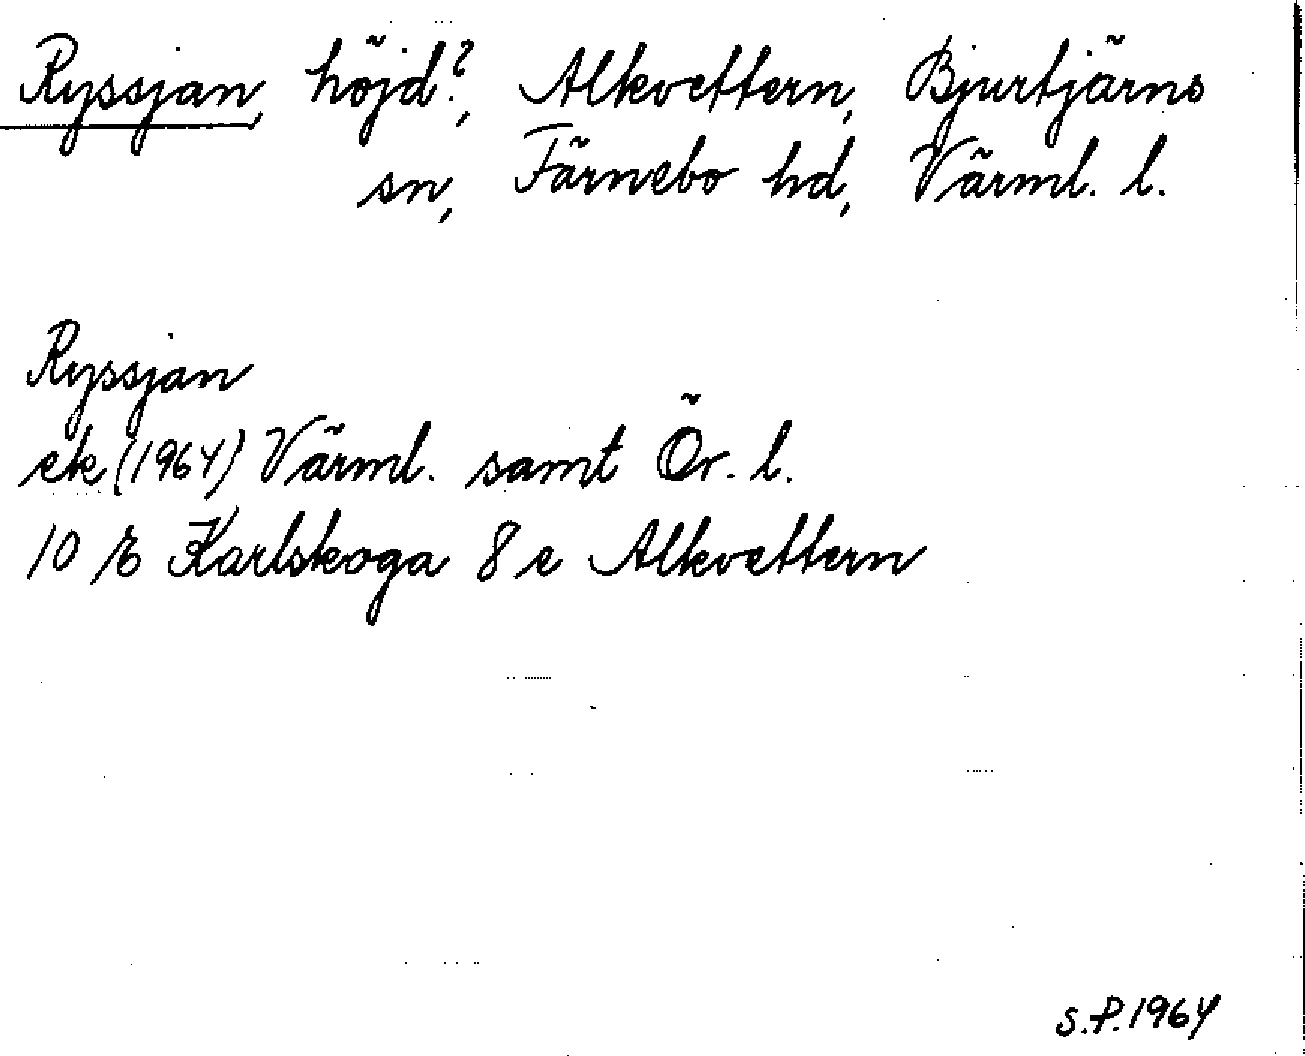 Ryssjan, höjd?, Alkvettern, Bjurtjärns
sn, Färnebo hd, Värml. l.
Ryssjan
ek (1964) Värml. samt Ör. l.
10 E Karlskoga 8 e Alkvettern
S.P. 1964